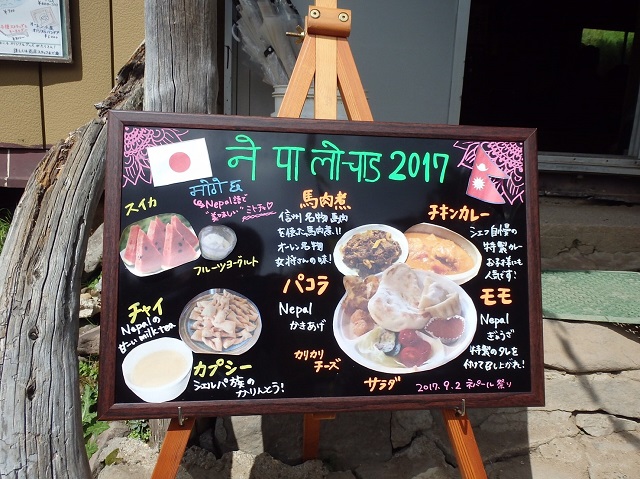 ने पा लो-चाड 2017
मीठो छ
↳Nepal語で
"美味しい"ミトチャ♡
スイカ
フルーツヨーグルト
馬肉煮
信州名物馬肉
を使った馬肉煮!!
オーレン名物
女将さんの味!
チキンカレー
シェフ自慢の
特製カレー
お子様にも
人気です!
チャイ
Nepalの
甘いmilk tea
カプシー
シェルパ族の
かりんとう!
パコラ
Nepal
かきあげ
カリカリ
チーズ
サラダ
モモ
Nepal
ぎょうざ
特製のタレを
付けて召し上がれ!
2017.9.2 ネパール祭り